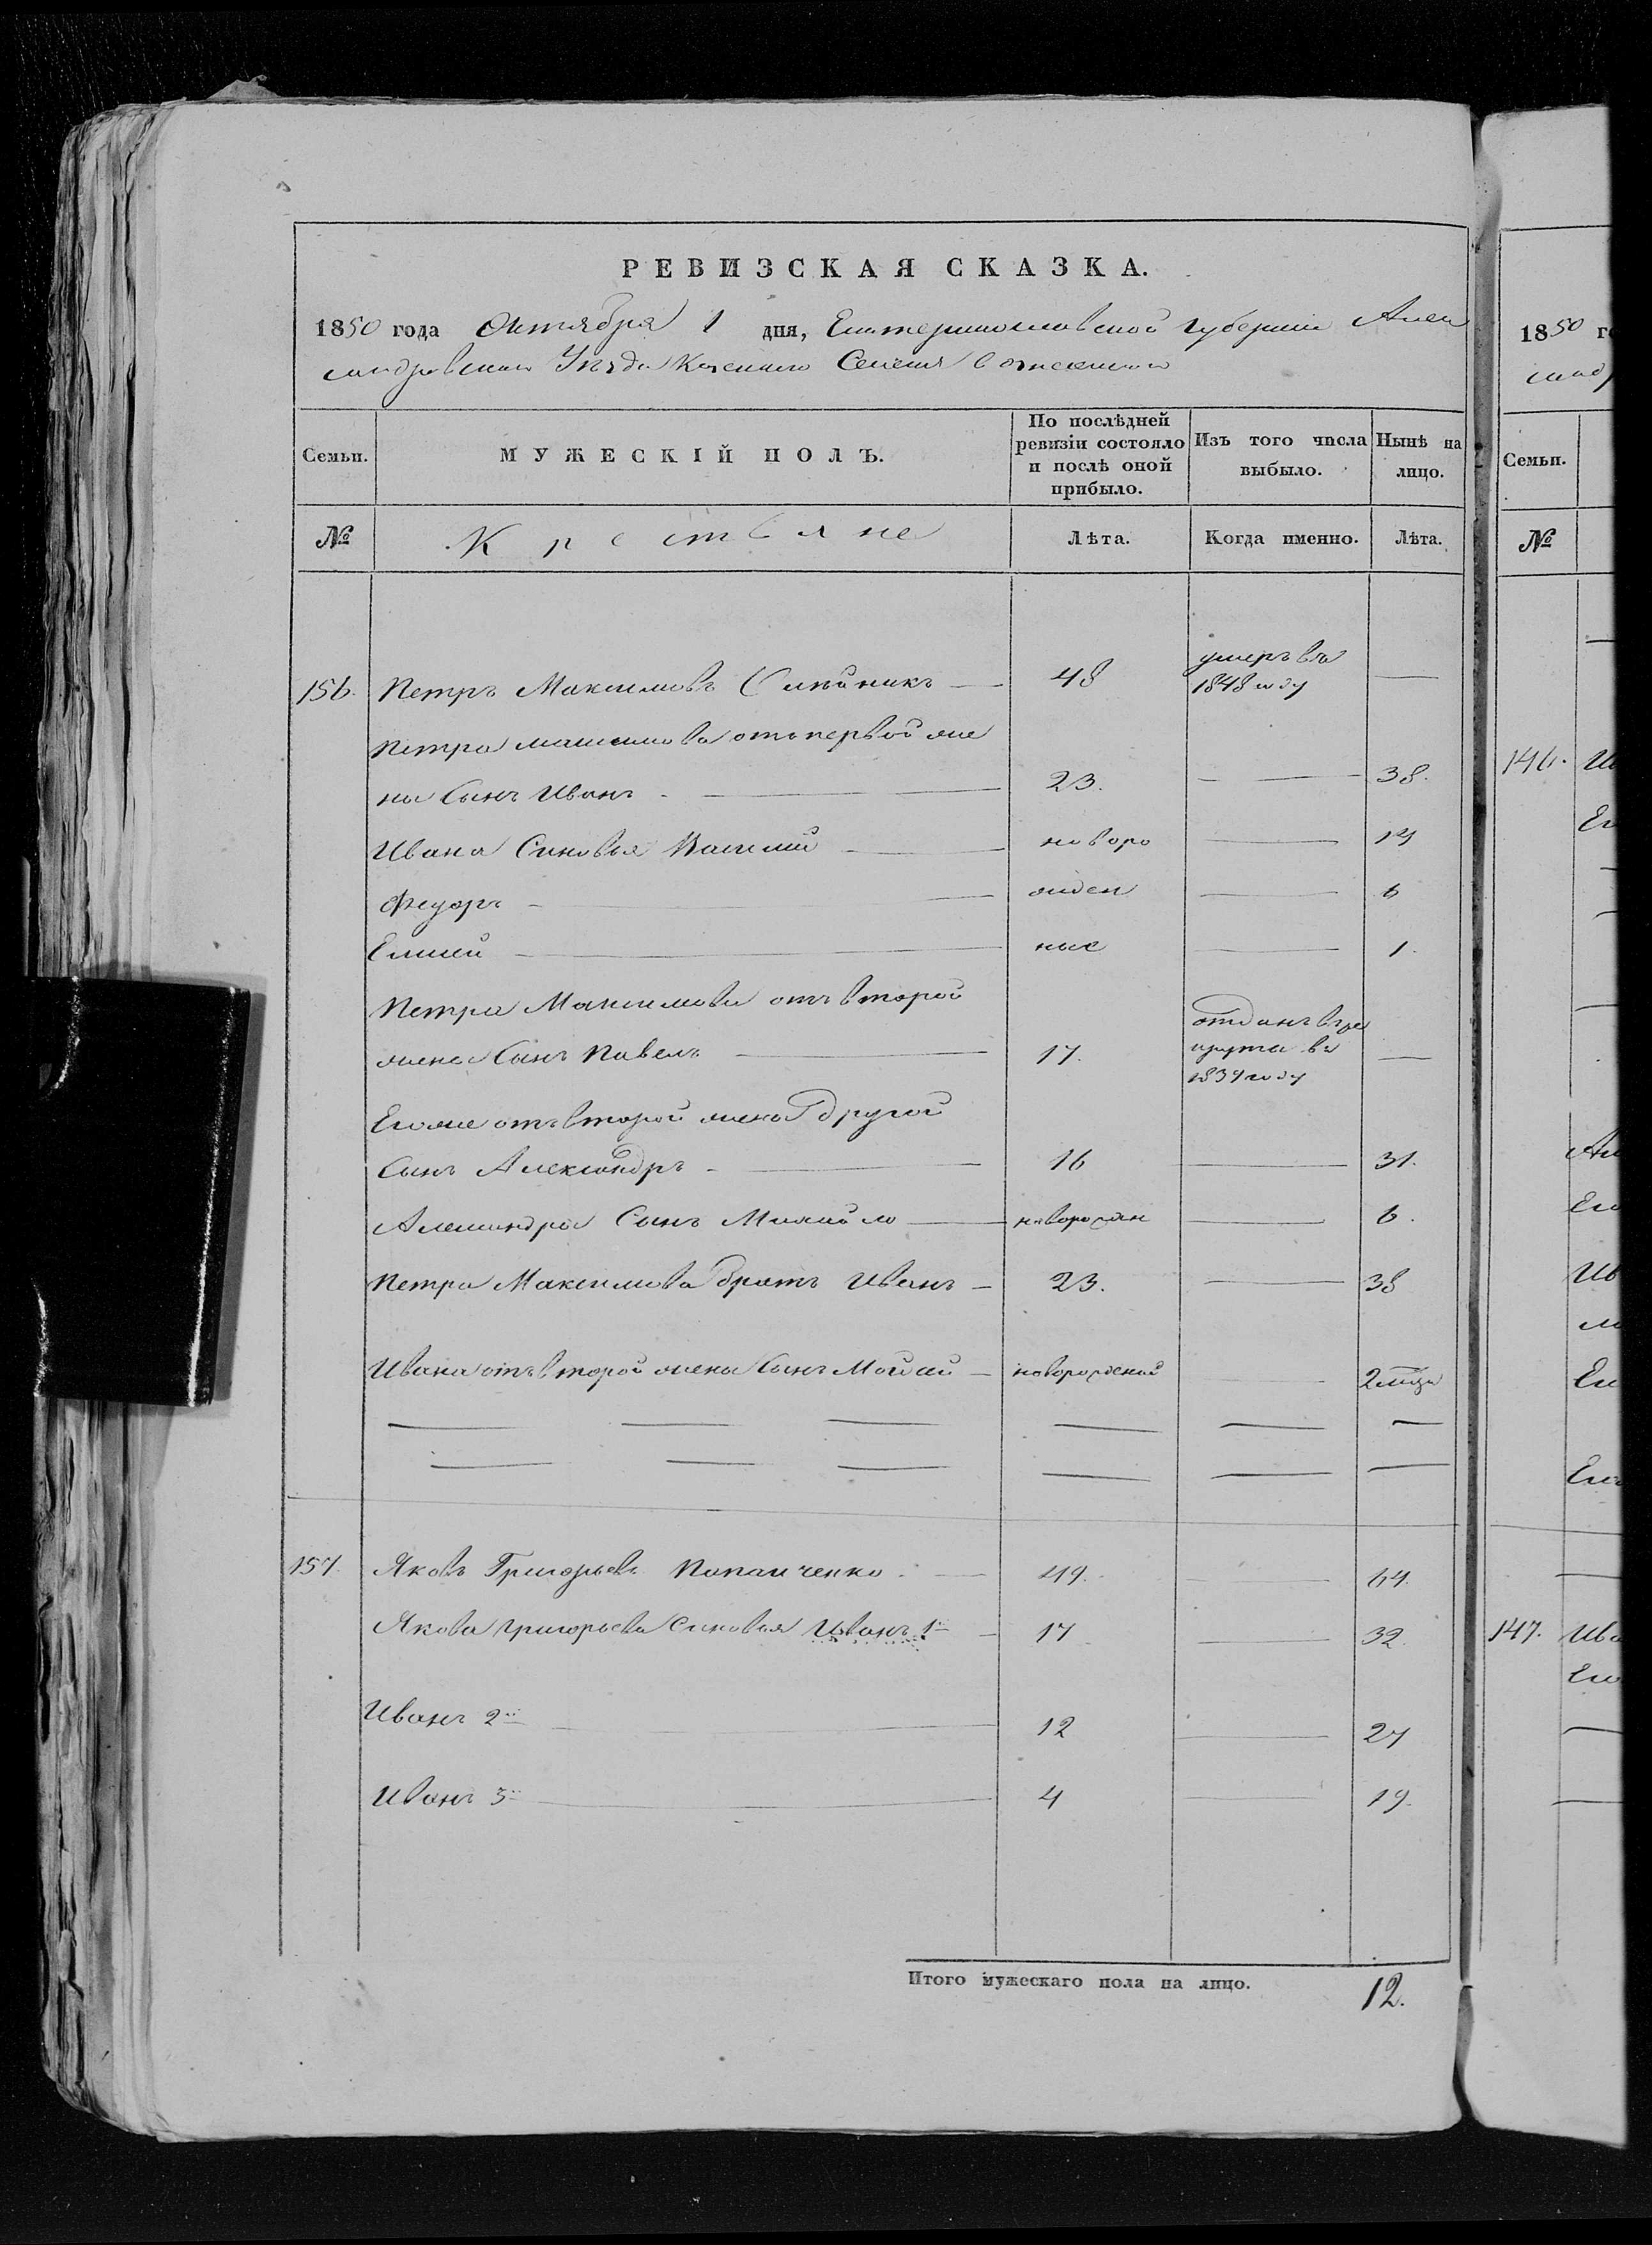 РЕВИЗСКАЯ СКАЗКА.
1850 года Октября 1 дня, Екатеринославской губернiи Алек
сандровскаго Уѣзда Казеннаго Селенiя
Семьи.
МУЖЕСКIЙ ПОЛЪ.
По послѣдней ревизiи состояло и послѣ оной прибыло.
Изъ того числа выбыло.
Нынѣ на лицо.
№
Крестьяне
Лѣта.
Когда именно.
Лѣта.
156. Петръ Максимовъ 48 умеръ въ 1848 году —
Петра Максимова отъ первой же
ны Сынъ Иванъ 23. — 38.
Ивана Сыновья Василий новоро — 14
Федоръ жден — 6
Елисей ные — 1.
Петра Максимова отъ второй
жены Сынъ Павелъ 17. отданъ въ ре круты въ 1834 году —
Его же отъ второй жены другой
Сынъ Александръ 16 — 31.
Александра Сынъ Михайло новорожден — 6.
Петра Максимова братъ Иванъ 23. — 38
Ивана отъ второй жены Сынъ Мойсей новорожденный — 2 мѣся
157. Яковъ Григорьевъ 49. — 64.
Якова Григорьева Сыновья Иванъ 1й 17 — 32.
Иванъ 2й 12 — 27
Иванъ 3й 4 — 19.
Итого мужескаго пола на лицо. 12.
1850 го
Семьи.
№
146.
147. Ива